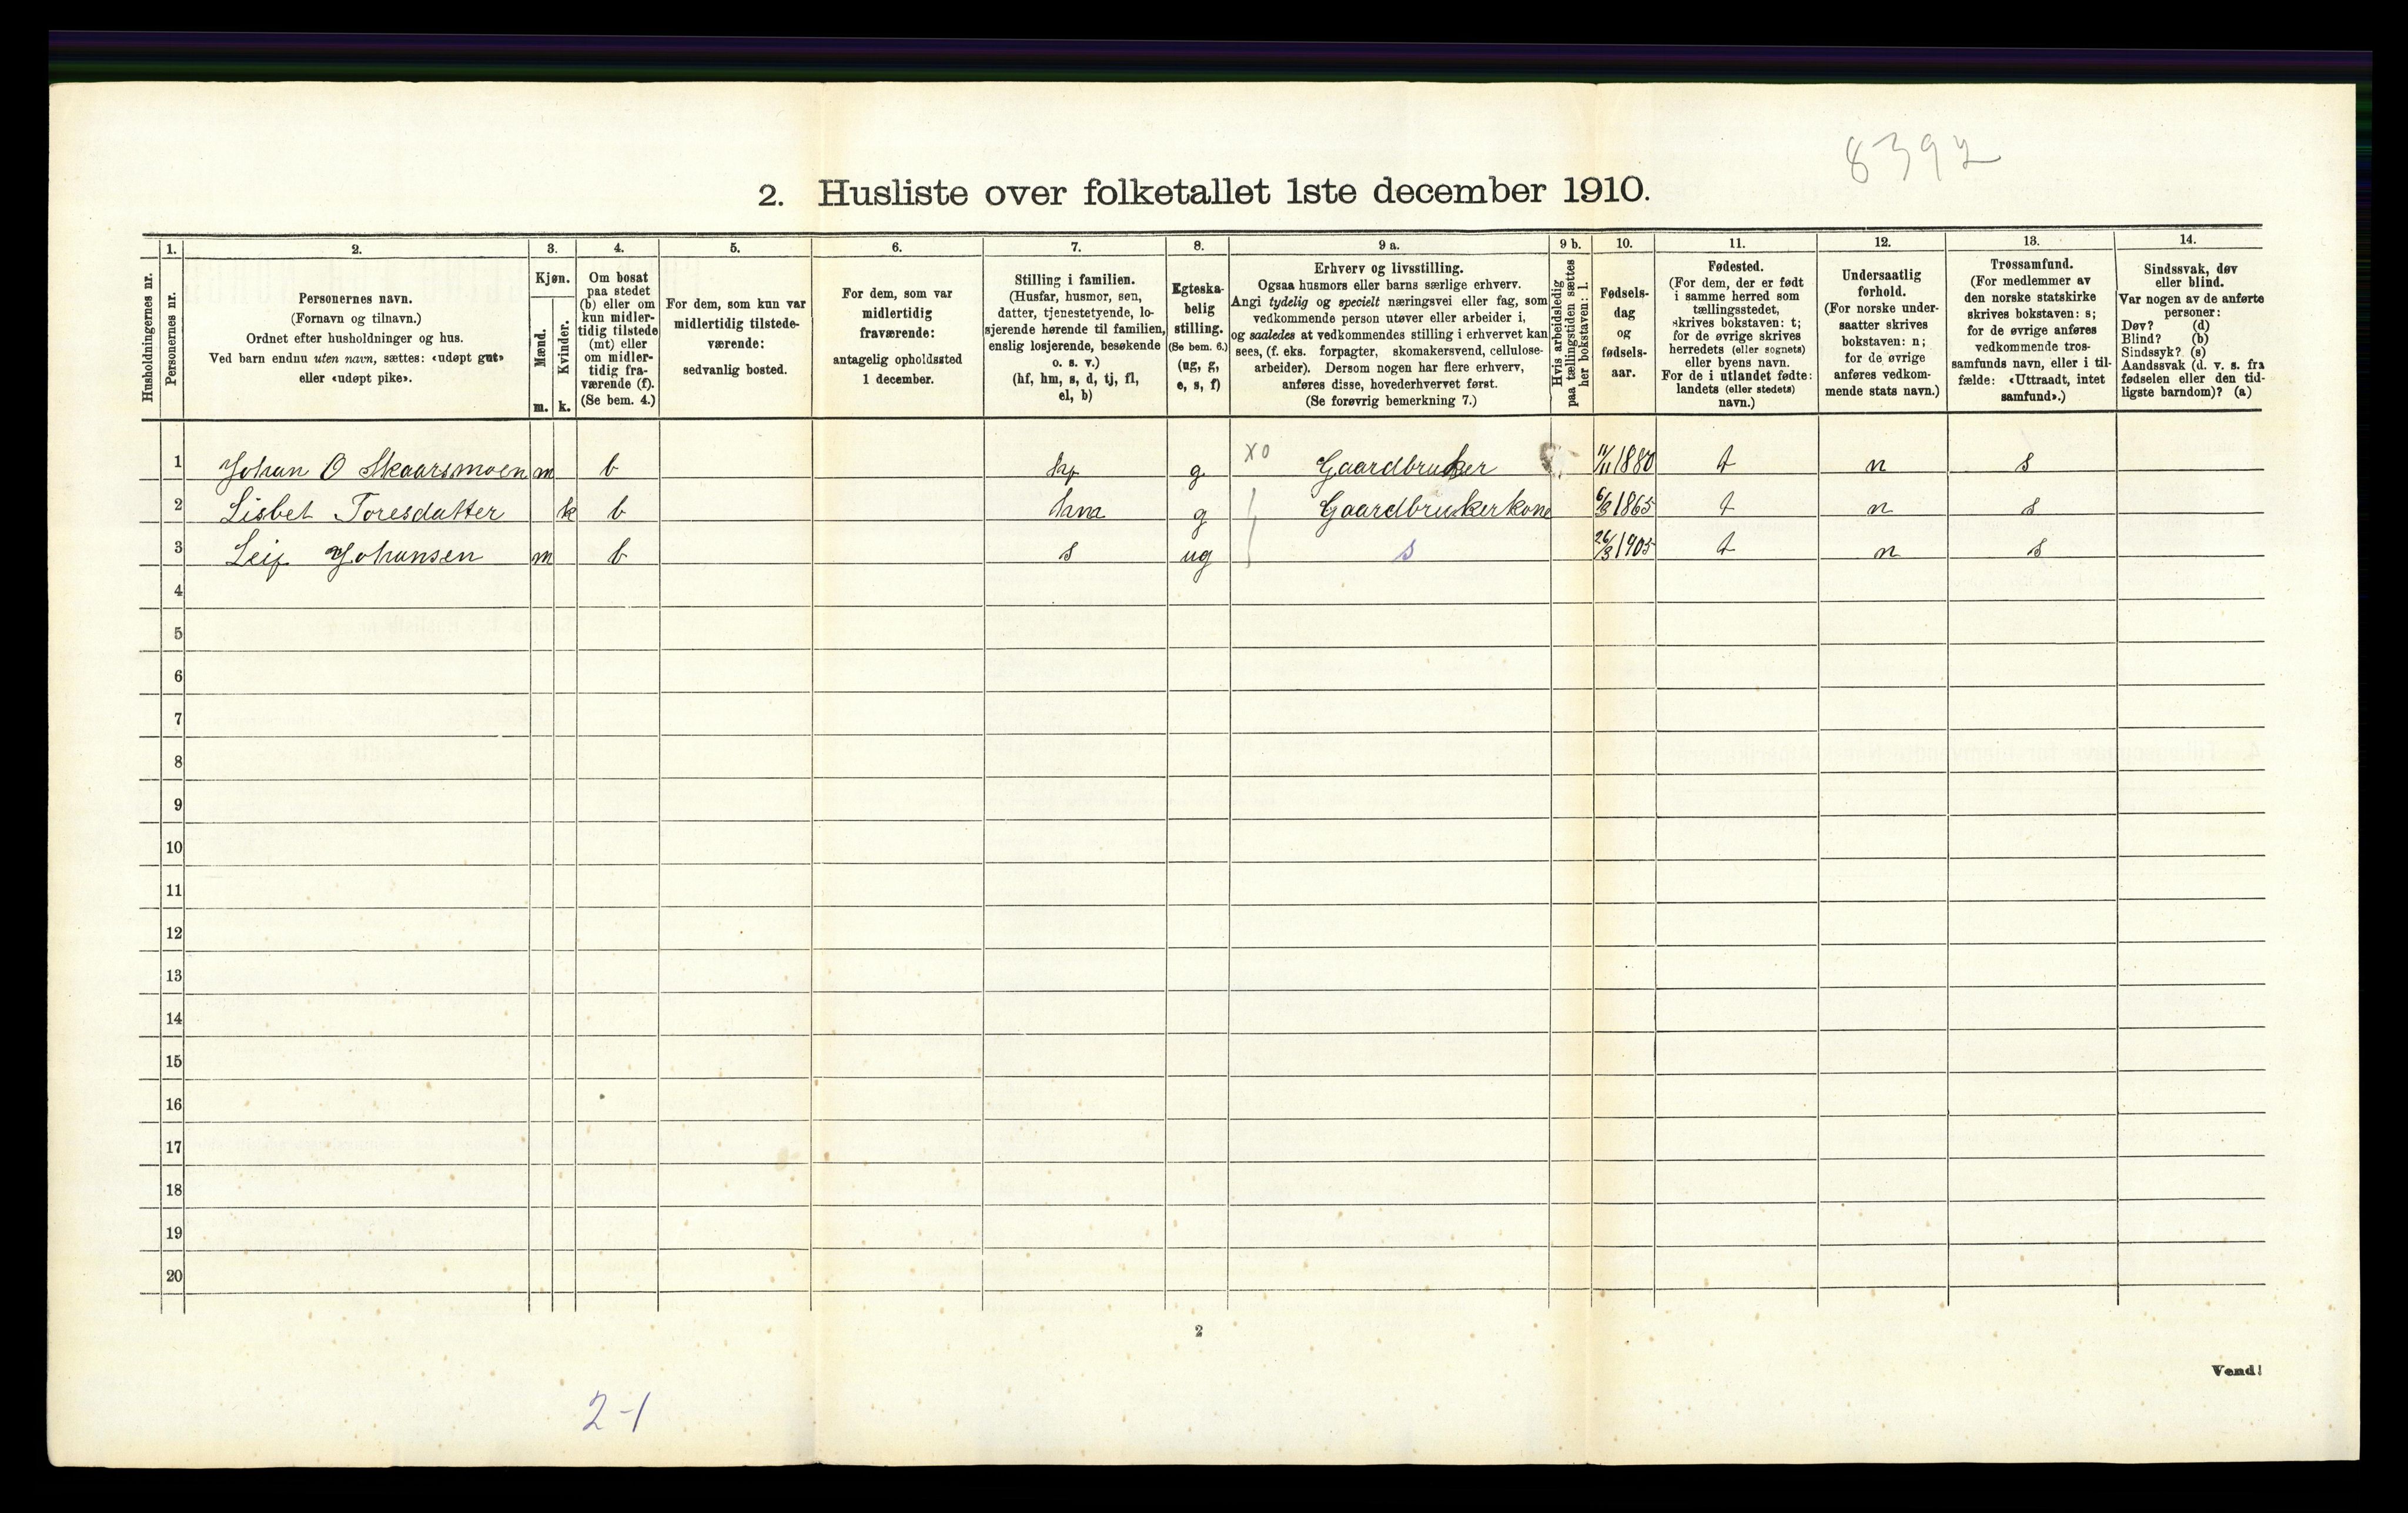 8392
2. Husliste over folketallet 1ste december 1910.
Husholdningernes nr.
1.
Personernes nr.
2.
Personernes navn.
(Fornavn og tilnavn.)
Ordnet efter husholdninger og hus.
Ved barn endnu uten navn, sættes: «udøpt gut»
eller «udøpt pike».
3.
Kjøn.
Mænd.
Kvinder.
m. k.
4.
Om bosat
paa stedet
(b) eller om
kun midler-
tidig tilstede
(mt) eller
om midler-
tidig fra-
værende (f).
(Se bem. 4.)
5.
For dem, som kun var
midlertidig tilstede-
værende:
sedvanlig bosted.
6.
For dem, som var
midlertidig
fraværende:
antagelig opholdssted
1 december.
7.
Stilling i familien.
(Husfar, husmor, søn,
datter, tjenestetyende, lo-
sjerende hørende til familien,
enslig losjerende, besøkende
o. s. v.)
(hf, hm, s, d, tj, fl,
el, b)
8.
Egteska-
belig
stilling.
(Se bem. 6.)
(ug, g,
e, s, f)
9 a.
Erhverv og livsstilling.
Ogsaa husmors eller barns særlige erhverv.
Angi tydelig og specielt næringsvei eller fag, som
vedkommende person utøver eller arbeider i,
og saaledes at vedkommendes stilling i erhvervet kan
sees, (f. eks. forpagter, skomakersvend, cellulose-
arbeider). Dersom nogen har flere erhverv,
anføres disse, hovederhvervet først.
(Se forøvrig bemerkning 7.)
9 b.
Hvis arbeidsledig
paa tællingstiden sættes
her bokstaven: l.
10.
Fødsels-
dag
og
fødsels-
aar.
11.
Fødested.
(For dem, der er født
i samme herred som
tællingsstedet,
skrives bokstaven: t;
for de øvrige skrives
herredets (eller sognets)
eller byens navn.
For de i utlandet fødte:
landets (eller stedets)
navn.)
12.
Undersaatlig
forhold.
(For norske under-
saatter skrives
bokstaven: n;
for de øvrige
anføres vedkom-
mende stats navn.)
13.
Trossamfund.
(For medlemmer av
den norske statskirke
skrives bokstaven: s;
for de øvrige anføres
vedkommende tros-
samfunds navn, eller i til-
fælde: «Uttraadt, intet
samfund».)
14.
Sindssvak, døv
eller blind.
Var nogen av de anførte
personer:
Døv? (d)
Blind? (b)
Sindssyk? (s)
Aandssvak (d. v. s. fra
fødselen eller den tid-
ligste barndom)? (a)
1 Johan O Skaarsmoen m b hf g xo Gaardbruker 11/11 1880 t n s
2 Lisbet Toresdatter k b hm g Gaardbrukerkone 1865 t n s
3 Leif Johansen m b s ug s 26/3 1905 t n s
4
5
6
7
8
9
10
11
12
13
14
15
16
17
18
19
20
2
Vend!
2-1